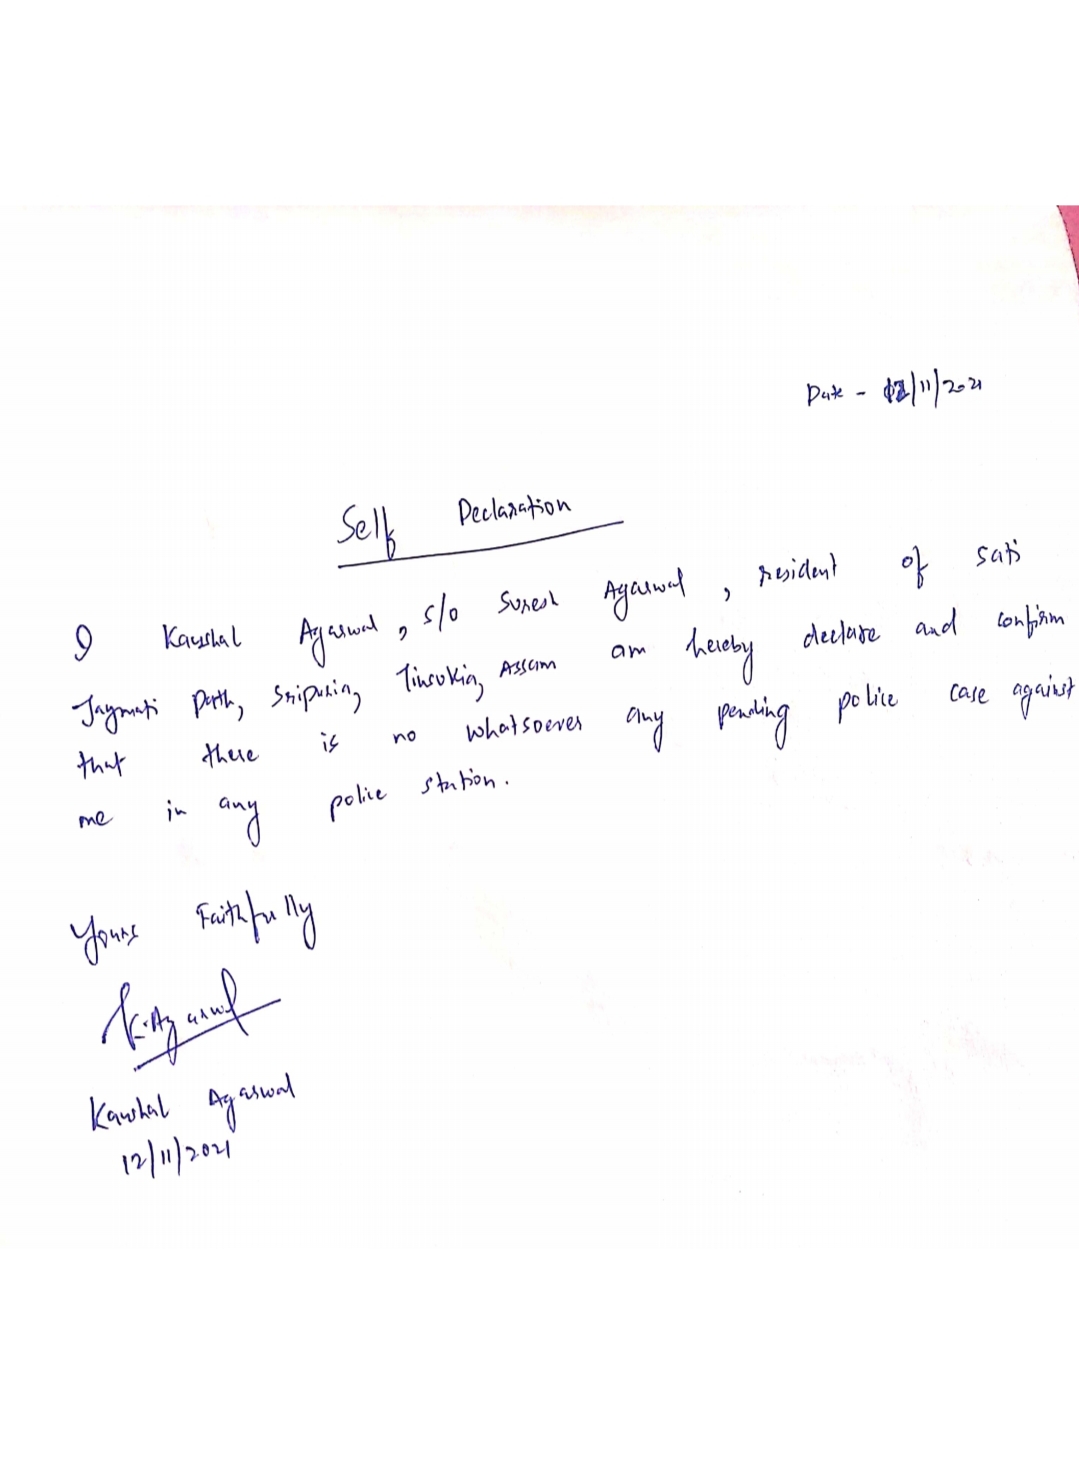 Date - 12/11/2021
Self Declaration
I Kaushal Agarwal, S/o Suresh Agarwal, resident of Sati
Jaymati Path, Sripuria, Tinsukia, Assam am hereby declare and confirm
that there is no whatsoever any pending police case against
me in any police station.
Yours Faithfully
K. Agarwal
Kaushal Agarwal
12/11/2021